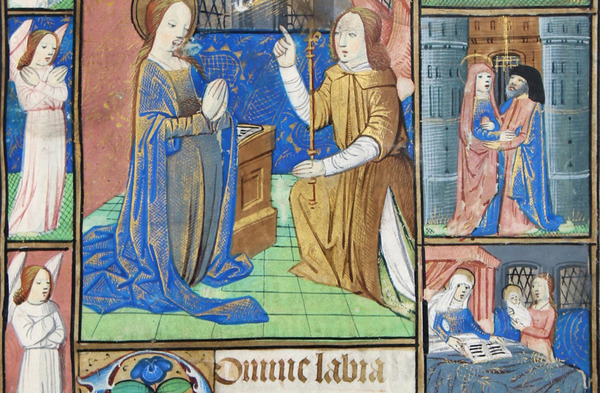 Domine labia